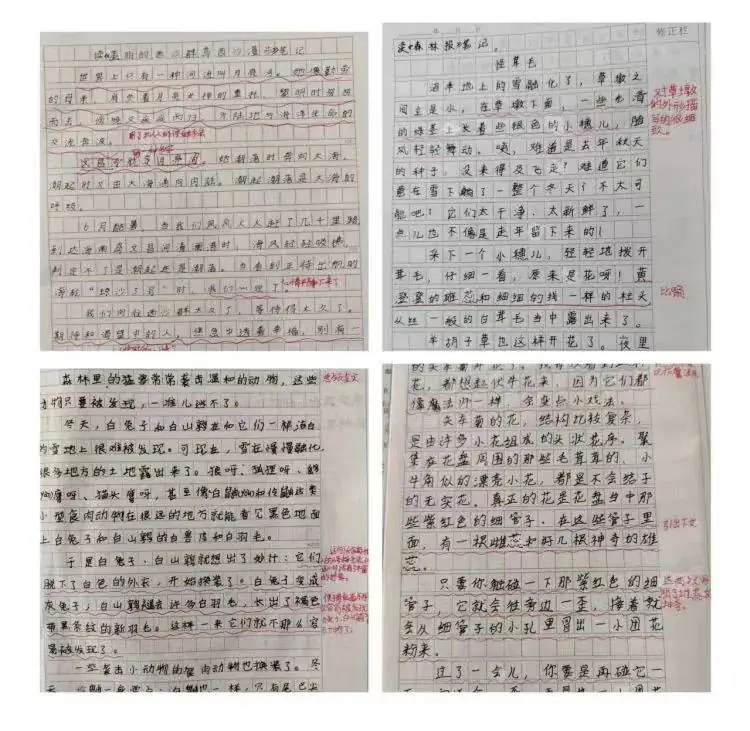 读《 的西沙群岛西沙漫步》笔记
世界上只有一种河流叫月亮
的母亲,肩负着月亮女神的重托,黎明时努
而去,傍晚又
交流奔波。
这是
朝起时又由大海涌向内陆。潮起潮落是大海的
呼吸。
6月酷暑,当我们风风火火赶了几十里路
到达海南岛文昌河清澜港时,海风轻轻吹拂,
判定不了是潮起还是潮落。当看到正待出航的
海轮“琼沙了号”时,我们
我们向往西沙群岛太久了,等待得太久了。
期待和渴望中的人,焦急中透着幸福,别有一
读《森林报》笔记。
怪草毛
沼泽地上的雪融化了,草墩之
间全是水,在草墩下面,一些光滑
的绿茎上长着些银色的小穗儿,随
风轻轻舞动。噢,难道是去年秋天
的种子,没来得及飞走?难道它们
竟在雪下躺了一整个冬天?不太可
能吧!它们太干净、太新鲜了,一
点儿也不像是去年留下来的!
采下一个小穗儿,轻轻地拨开
茸毛,仔细一看,原来是花呀!黄
澄澄的雄蕊和细细的线一样的柱头
从丝一般的白茸毛当中露出来了。
羊胡子草也这样开花了。夜里
修正栏
对草墩
的外形描
写的很细
致。
比喻
森林里的猛兽常常袭击温和的动物,这些
动物只要被发现,一准儿逃不了。
冬天,白兔子和白山鹑在和它们一样洁白
的雪地上很难被发现。可现在,雪在慢慢融化,
很多地方的土地露出来了。狼呀、狐狸呀、鹞
鹰呀、猫头鹰呀,甚至像白鼬和伶鼬这类
小型食肉动物在很远的地方就能看它黑色地面
上白兔子和白山鹑的白兽皮和白羽毛。
于是白兔子、白山鹑就想出了妙计:它们
脱下了白色的外衣,开始换装了。白兔子变成
灰兔子,白山鹑褪去许多白羽毛,长出了褐色
带黑条纹的新羽毛。这样一来它们就不那么容
易被发现了。
一些袭击小动物的食肉动物也换装了。冬
花,都想起伏牛花来,因为它们都
像魔法师一样,会变点小戏法。
矢车菊的花,结构比较复杂,
是由许多小花组成的头状花序。聚
集在花盘周围的那些毛茸茸的、小
牛角似的漂亮小花,都是不会结子
的无实花。真正的花是花盘当中那
些紫红色的细管子。在这些管子里
面,有一根雌蕊和好几根神奇的雄
蕊。
引出下文
只要你触碰一下那紫红色的细
管子,它就会往旁边一歪,接着就
会从细管子的小孔里冒出一小团花
粉来。
过了一会儿,你要是再碰它一